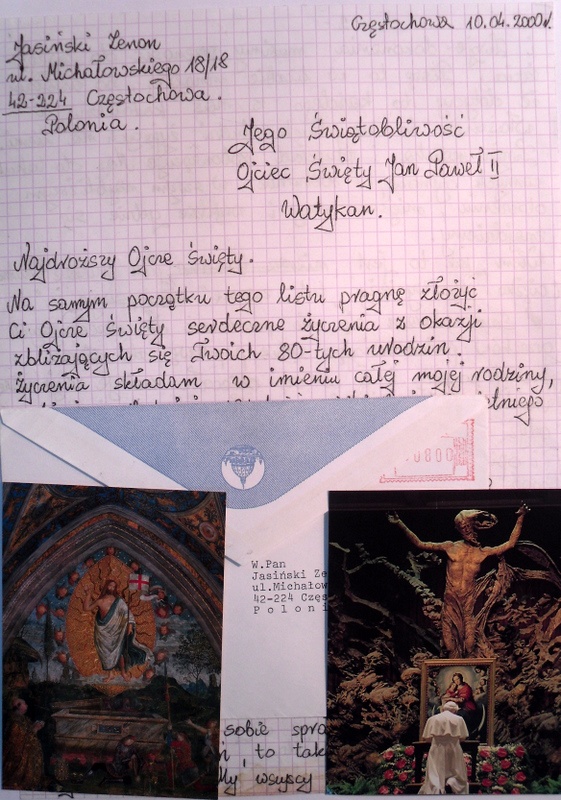 Częstochowa 10.04.2000r.
Jasiński Zenon
ul. Michałowskiego 18/18
42-224 Częstochowa.
Polonia.
Jego Świątobliwość
Ojciec Święty Jan Paweł II
Watykan.
Najdroższy Ojcze Święty.
Na samym początku tego listu pragnę złożyć
Ci Ojcze Święty serdeczne życzenia z okazji
zbliżających się Twoich 80-tych urodzin.
życzenia składam w imieniu całej mojej rodziny,
0080
W.Pan
Jasiński Ze
ul.Michałow
42-224 Częs
P o l o n i
sobie spra
to tak
My wszyscy